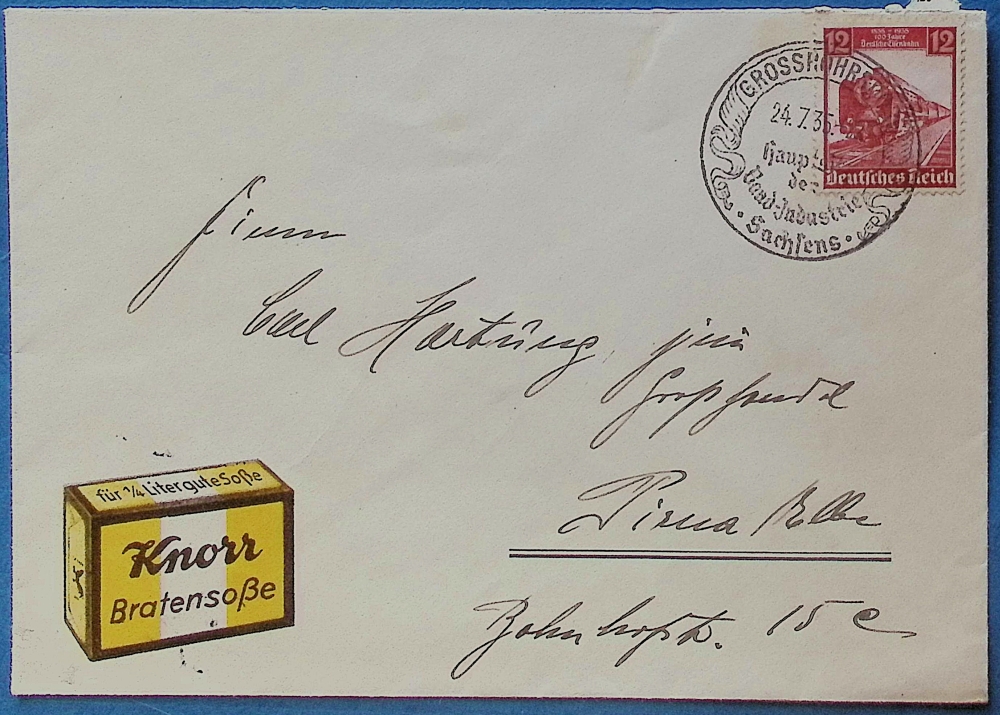 12 1835 - 1935 12
100 Jahre
Deutsche Eisenbahn
Deutsches Reich
GROSSRÖHRS
24.7.35
Haupt
der
Band-Industrie
Sachsens
Firma
Carl Hartung jun
Großhandl
Pirna Elbe
Bahnhofstr. 15 c
für 1/4 Liter gute Soße
Knorr
Bratensoße